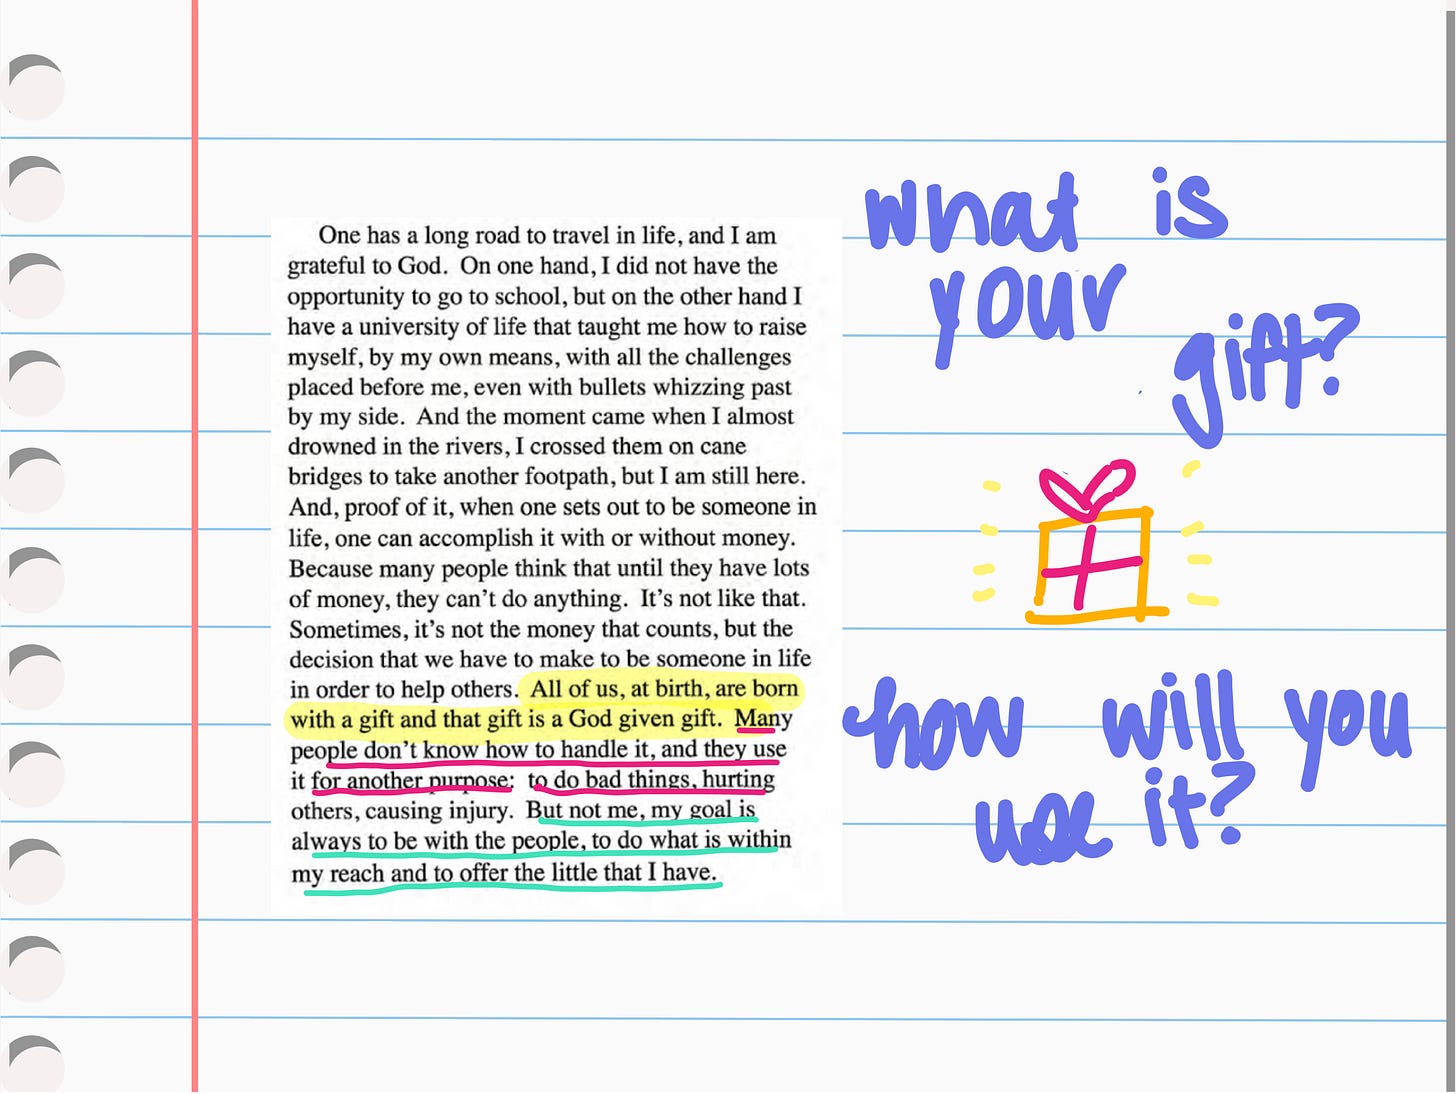 One has a long road to travel in life, and I am
grateful to God. On one hand, I did not have the
opportunity to go to school, but on the other hand I
have a university of life that taught me how to raise
myself, by my own means, with all the challenges
placed before me, even with bullets whizzing past
by my side. And the moment came when I almost
drowned in the rivers, I crossed them on cane
bridges to take another footpath, but I am still here.
And, proof of it, when one sets out to be someone in
life, one can accomplish it with or without money.
Because many people think that until they have lots
of money, they can't do anything. It's not like that.
Sometimes, it's not the money that counts, but the
decision that we have to make to be someone in life
in order to help others. All of us, at birth, are born
with a gift and that gift is a God given gift. Many
people don't know how to handle it, and they use
it for another purpose: to do bad things, hurting
others, causing injury. But not me, my goal is
always to be with the people, to do what is within
my reach and to offer the little that I have.
what is
your
gift?
how will you
use it?